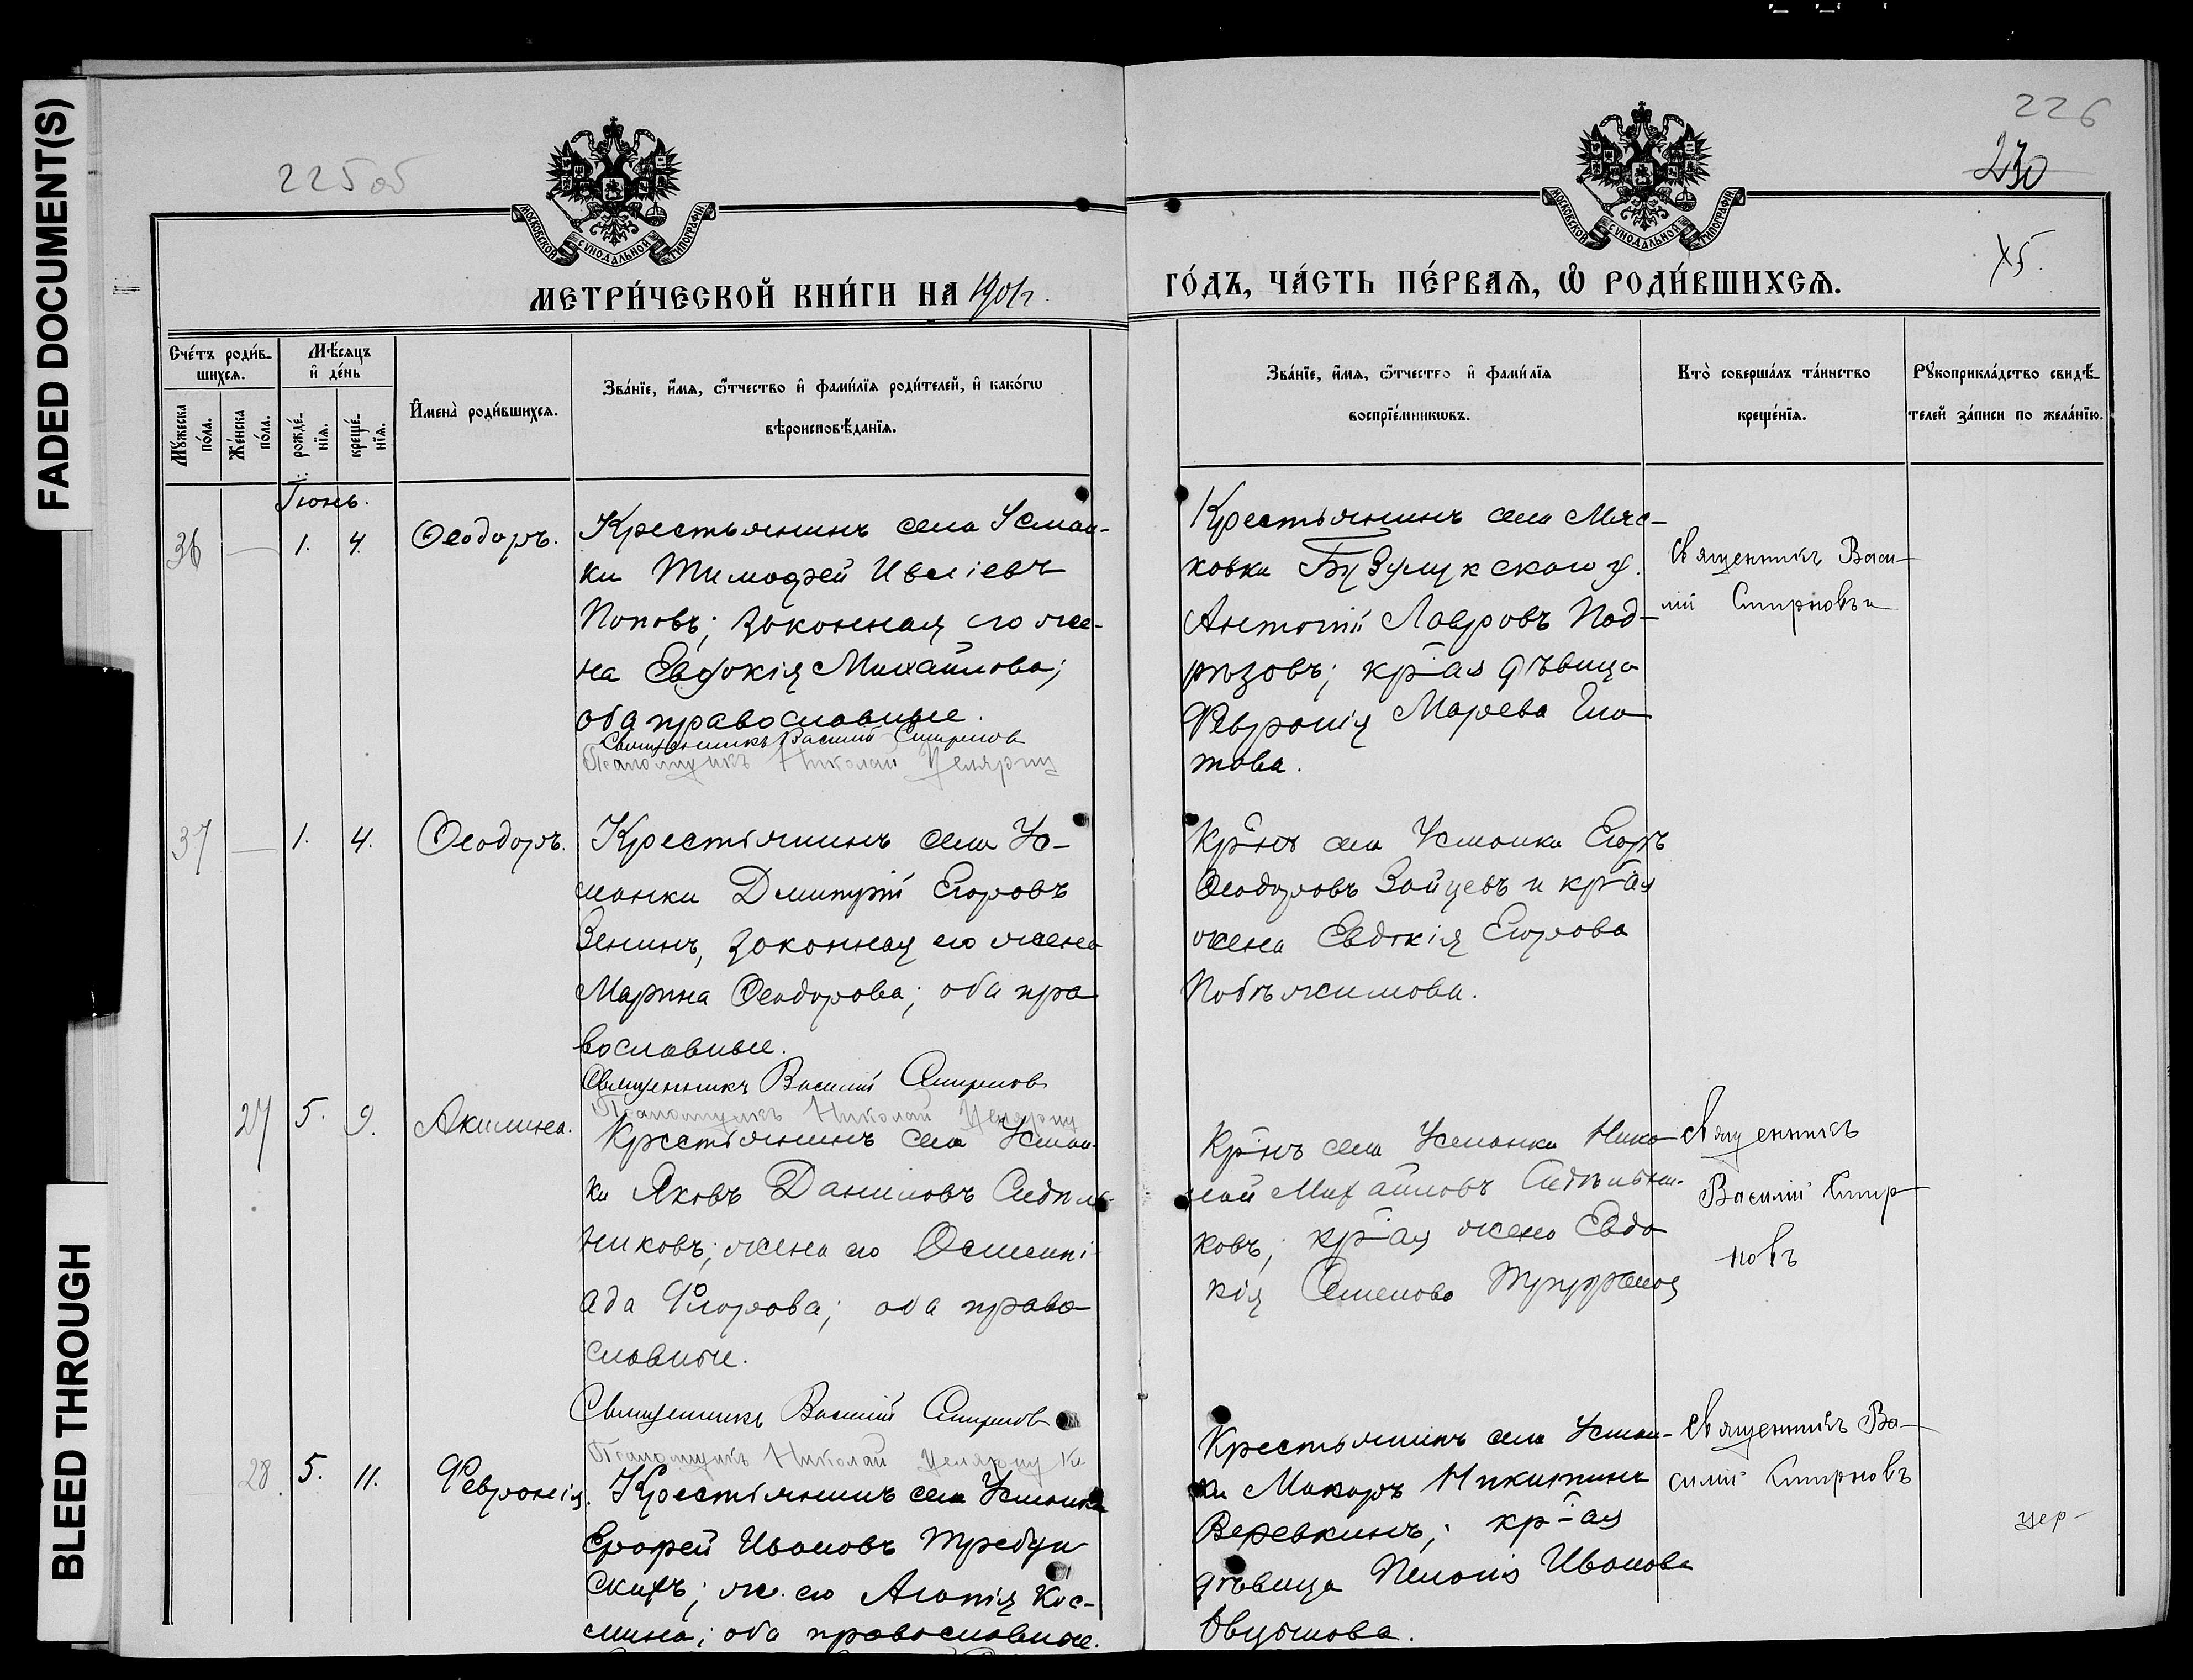 FADED DOCUMENT(S)
BLEED THROUGH
225об
226
230
МОСКОВСКОЙ СѴНОДАЛЬНОЙ ТИПОГРАФІИ
МОСКОВСКОЙ СѴНОДАЛЬНОЙ ТИПОГРАФІИ
МЕТРИ́ЧЕСКОЙ КНИ́ГИ НА 1901г.
ГО́ДЪ, ЧА́СТЬ ПЕ́РВАѦ, Ѡ҆ РОДИ́ВШИХСѦ.
Сче́тъ роди́в-
шихсѧ.
Мꙋ́жеска
по́ла.
Же́нска
по́ла.
Мѣ́сѧцъ
и҆ де́нь
рожде́-
нїѧ.
креще́-
нїѧ.
И҆мена̀ роди́вшихсѧ.
Зва́нїе, и҆́мѧ, ѻ҆́тчество и҆ фами́лїѧ роди́телей, и҆ како́гѡ
вѣроисповѣ́данїѧ.
Зва́нїе, и҆́мѧ, ѻ҆́тчество и҆ фами́лїѧ
воспрїе́мникѡвъ.
Кто̀ соверша́лъ та́инство
креще́нїѧ.
Рꙋкоприкла́дство свидѣ́-
телей за́писи по жела́нїю.
Іюнь.
36 — 1. 4. Ѳеодоръ.
Крестьянинъ села Усман-
ки Тимофей Ивліевъ
Поповъ; законная его же-
на Евдокія Михайлова;
оба православные.
Священникъ Василій Смирнов
Псаломщикъ Николай
Крестьянинъ села Мяс-
ковки Бузулукского у.
Антоній Лавровъ Под-
рѣзовъ; кр-ая дѣвица
Февронія Марева
това.
Священникъ Васи-
лій Смирновъ
37 — 1. 4. Ѳеодоръ.
Крестьянинъ села Ус-
манки Дмитрій Егоровъ
Зенинъ, законная его жена
Марина Ѳеодорова; оба пра
вославные.
Священникъ Василій Смирнов
Псаломщикъ Николай
Кр-нъ села Усманки Егоръ
Ѳеодоровъ Зайцевъ и кр-ая
жена Евдокія Егорова
Побѣжимова.
27 5. 9. Акилина.
Крестьянинъ села Усман-
ки Яковъ Даниловъ Сидѣль
никовъ; жена его Олимпі-
ада Флорова; оба право
славные.
Священникъ Василій Смирнов
Псаломщикъ Николай
Кр-нъ села Усманки Нико
лай Михайловъ Сидѣльни-
ковъ; кр-ая жена Евдо
кія Семенова
Священникъ
Василій Смир
новъ
28. 5. 11. Февронія.
Крестьянинъ села Усманки
Ерофей Ивановъ Требун
скихъ; ж. его Агапія Кос-
мина; оба православные.
Крестьянинъ села Усман-
ки Макаръ Никитинъ
Веревкинъ; кр-ая
дѣвица Пелагія Иванова
Священникъ Ва-
силій Смирновъ
цер-